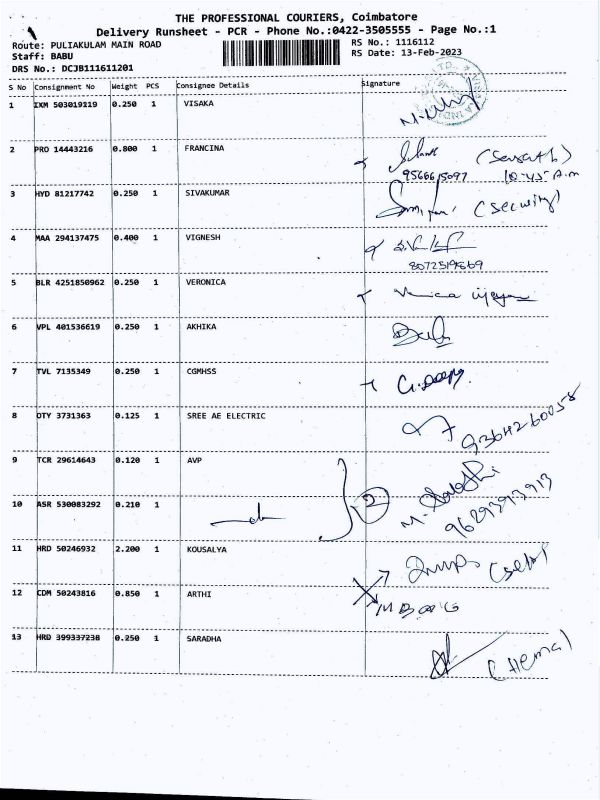 THE PROFESSIONAL COURIERS, Coimbatore
Delivery Runsheet - PCR - Phone No.:0422-3505555 - Page No.:1
Route: PULIAKULAM MAIN ROAD RS No.: 1116112
Staff: BABU RS Date: 13-Feb-2023
DRS No.: DCJB111611201
S No Consignment No Weight PCS Consignee Details Signature
1 IXM 503019119 0.250 1 VISAKA
2 PRO 14443216 0.800 1 FRANCINA
9566615097 10-45-A.m
3 HYD 81217742 0.250 1 SIVAKUMAR (Security)
4 MAA 294137475 0.400 1 VIGNESH
5 BLR 4251850962 0.250 1 VERONICA
6 VPL 401536619 0.250 1 AKHIKA
7 TVL 7135349 0.250 1 CGMHSS
8 OTY 3731363 0.125 1 SREE AE ELECTRIC
9364260058
9 TCR 29614643 0.120 1 AVP
2
10 ASR 530083292 0.210 1
9629393913
11 HRD 50246932 2.200 1 KOUSALYA
12 CDM 50243816 0.850 1 ARTHI
13 HRD 399337238 0.250 1 SARADHA
(Hema)